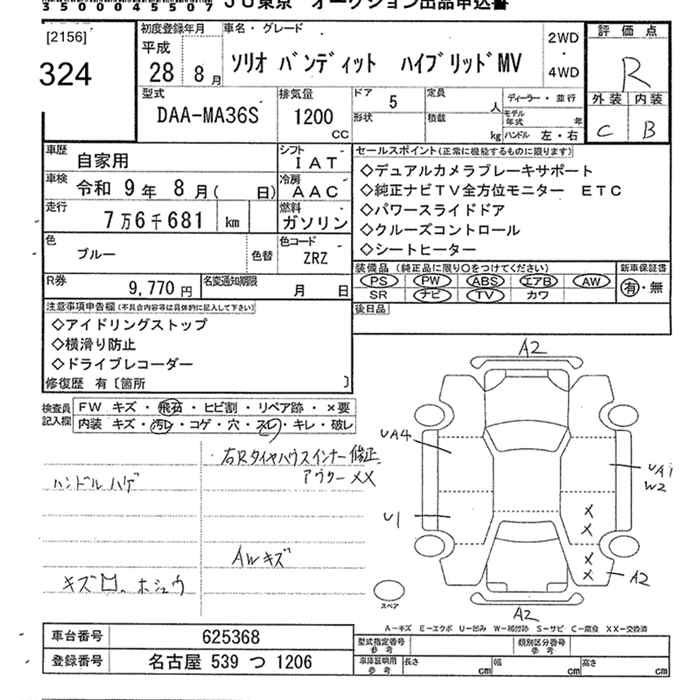 35000045507 JU東京 オークション出品申込書
[2156]
324
初度登録年月
平成
28年 8月
車名・グレード
ソリオ バンディット ハイブリッドMV
2WD
・
4WD
評価点
R
外装 内装
C B
型式
DAA-MA36S
排気量
1200
cc
ドア
5
形状
定員
人
積載
kg
ディーラー・並行
モデル年式 年
ハンドル 左・右
車歴
自家用
シフト
IAT
車検
令和 9年 8月( 日)
冷房
AAC
走行
7万6千681 km
燃料
ガソリン
色
ブルー
色替
色コード
ZRZ
R券
9,770円
名変通知期限
月 日
セールスポイント(正常に機能するものに限ります)
◇デュアルカメラブレーキサポート
◇純正ナビTV全方位モニター ETC
◇パワースライドドア
◇クルーズコントロール
◇シートヒーター
装備品(純正品に限り○をつけてください)
PS PW ABS エアB AW
SR ナビ TV カワ
新車保証書
有・無
後日品
注意事項申告欄(不具合内容等は具体的に記入して下さい)
◇アイドリングストップ
◇横滑り防止
◇ドライブレコーダー
修復歴 有〔箇所 〕
検査員
記入欄
FW キズ・飛石・ヒビ割・リペア跡・×要
内装 キズ・汚レ・コゲ・穴・スレ・キレ・破レ
右Rタイヤハウスインナー修正
アウターXX
ハンドルハゲ
AWキズ
キズ凹。ホシュウ
A2
UA4
UA1
W2
U1
X
X
X
X
A2
A2
スペア
A-キズ E-エクボ U-凹み W-補修跡 S-サビ C-腐食 XX-交換済
車台番号 625368
登録番号 名古屋 539 つ 1206
型式指定番号
参考
類別区分番号
参考
車庫証明用
参考
長さ cm
幅 cm
高さ cm